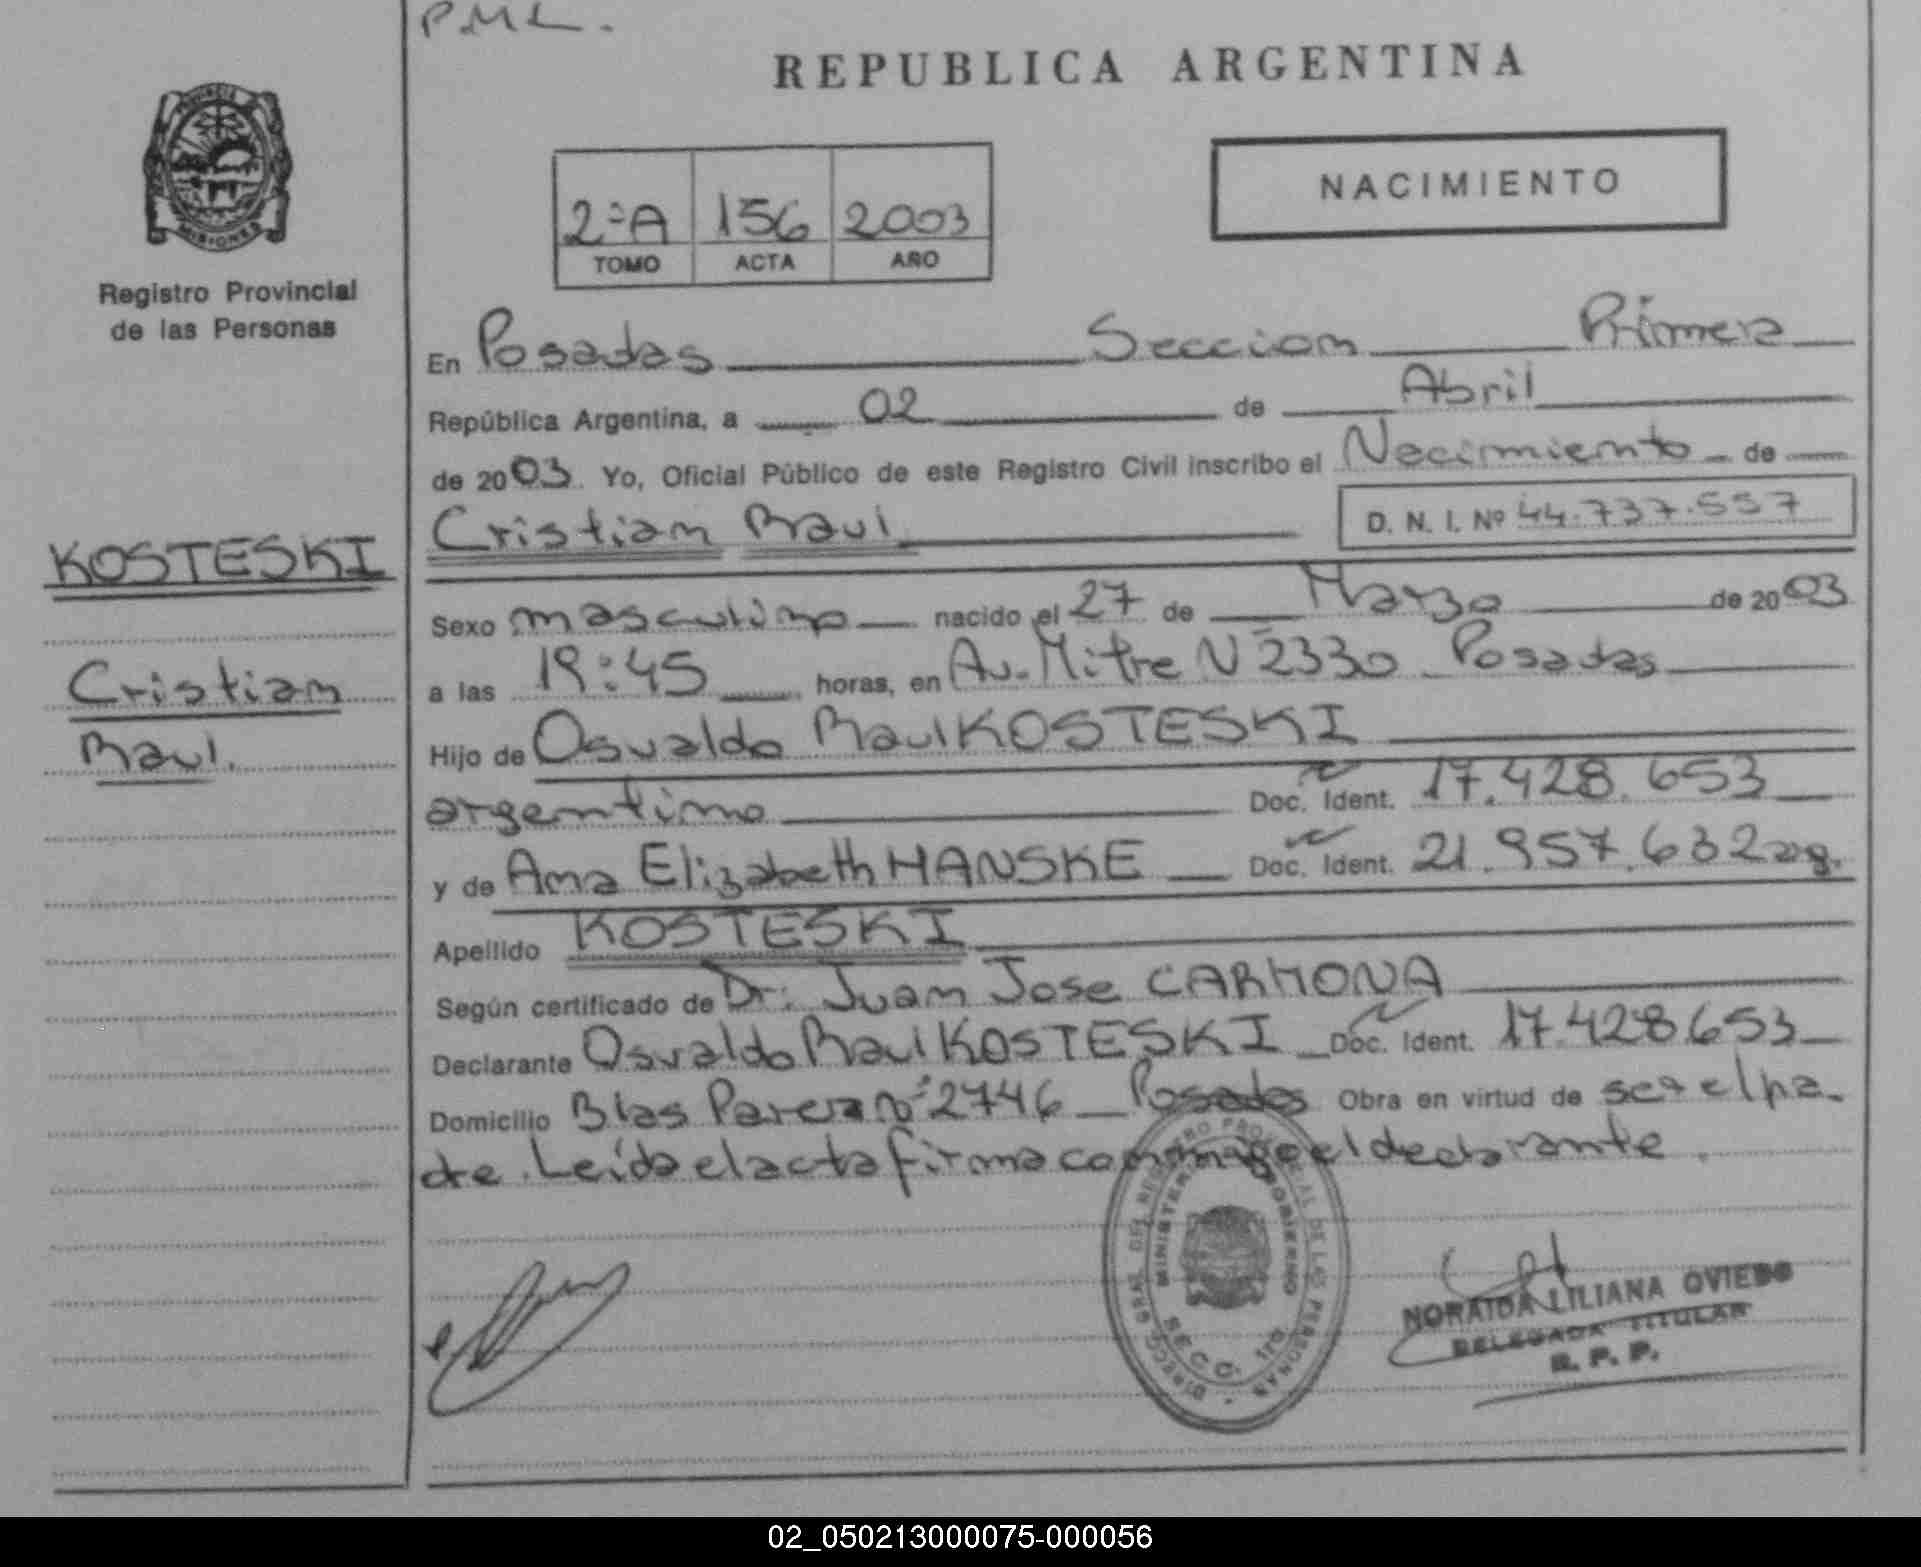 P.M.L.
REPUBLICA ARGENTINA
NACIMIENTO
2ºA 156 2003
TOMO ACTA AÑO
PROVINCIA DE
MISIONES
Registro Provincial
de las Personas
En Posadas Seccion Primera
República Argentina, a 02 de Abril
de 2003. Yo, Oficial Público de este Registro Civil inscribo el Nacimiento de
Cristian Raul D. N. I. Nº 44.737.557
KOSTESKI
Cristian
Raul.
Sexo masculino nacido el 27 de Marzo de 2003
a las 19:45 horas, en Av. Mitre Nº 2330 Posadas
Hijo de Osvaldo Raul KOSTESKI
argentino Doc. Ident. 17.428.653
y de Ana Elizabeth HANSKE Doc. Ident. 21.957.632 ag.
Apellido KOSTESKI
Según certificado de Dr: Juan Jose CARMONA
Declarante Osvaldo Raul KOSTESKI Doc. Ident. 17.428.653
Domicilio Blas Parera Nº 2746 Posadas Obra en virtud de ser el pa-
dre. Leída el acta firma conmigo el declarante.
DIRECC. GRAL. DEL REGISTRO PROVINCIAL DE LAS PERSONAS
MINISTERIO GOBIERNO
SECC. 1ra.
NORAIDA LILIANA OVIEDO
DELEGADA TITULAR
R. P. P.
02_050213000075-000056